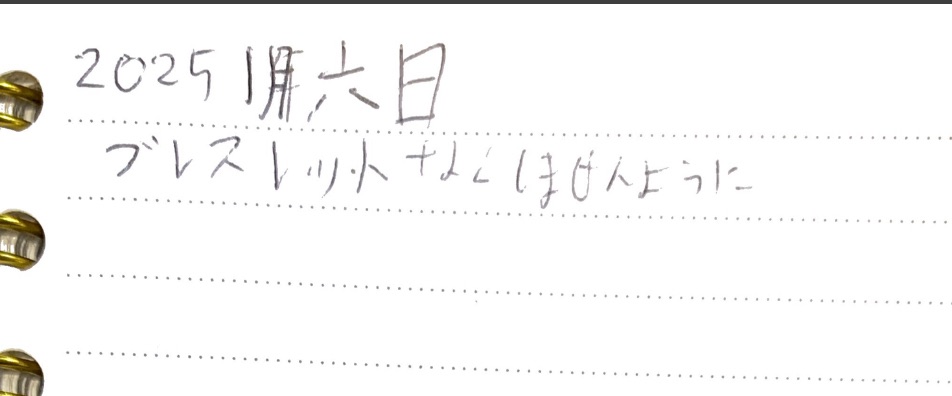 2025 1月六日
ブレスレットなくしませんように